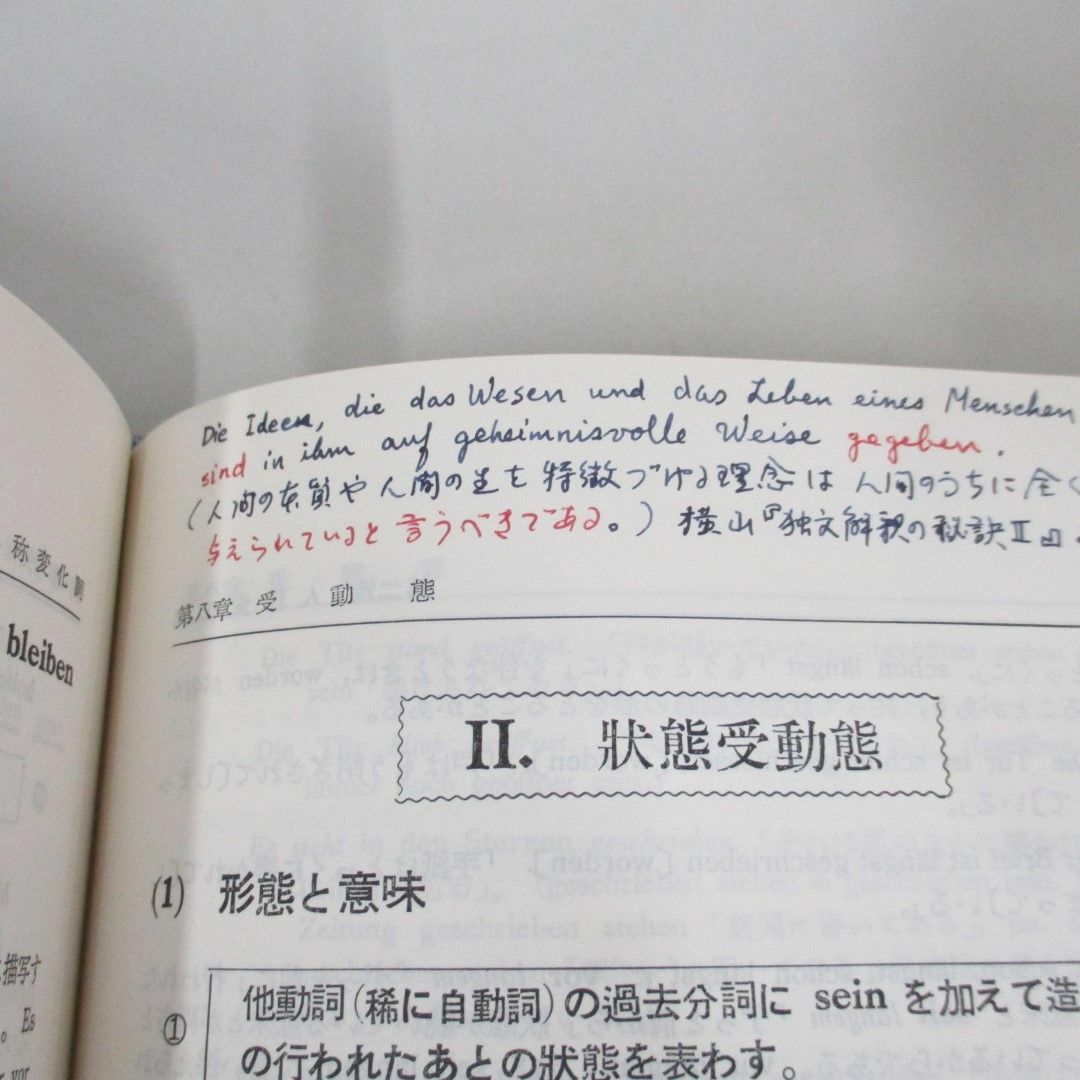 Die Ideen, die das Wesen und das Leben eines Menschen
sind in ihm auf geheimnisvolle Weise gegeben.
(人間の本質や人間の生を特徴づける理念は人間のうちに全く
与えられていると言うべきである。) 横山『独文解釈の秘訣II』
称変化調
bleiben
描写す
。Es
vor
第八章 受動態
II. 狀態受動態
(1) 形態と意味
① 他動詞(稀に自動詞)の過去分詞に sein を加えて造
の行われたあとの狀態を表わす。